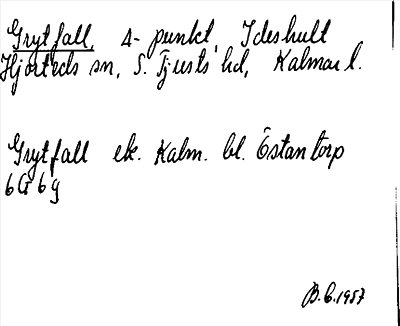 Grytfall, 4-punkt, Ideshult
Hjorteds sn, S. Tjusts hd, Kalmar l.
Grytfall ek. Kalm. bl. Östantorp
6G 6g
B.C. 1957